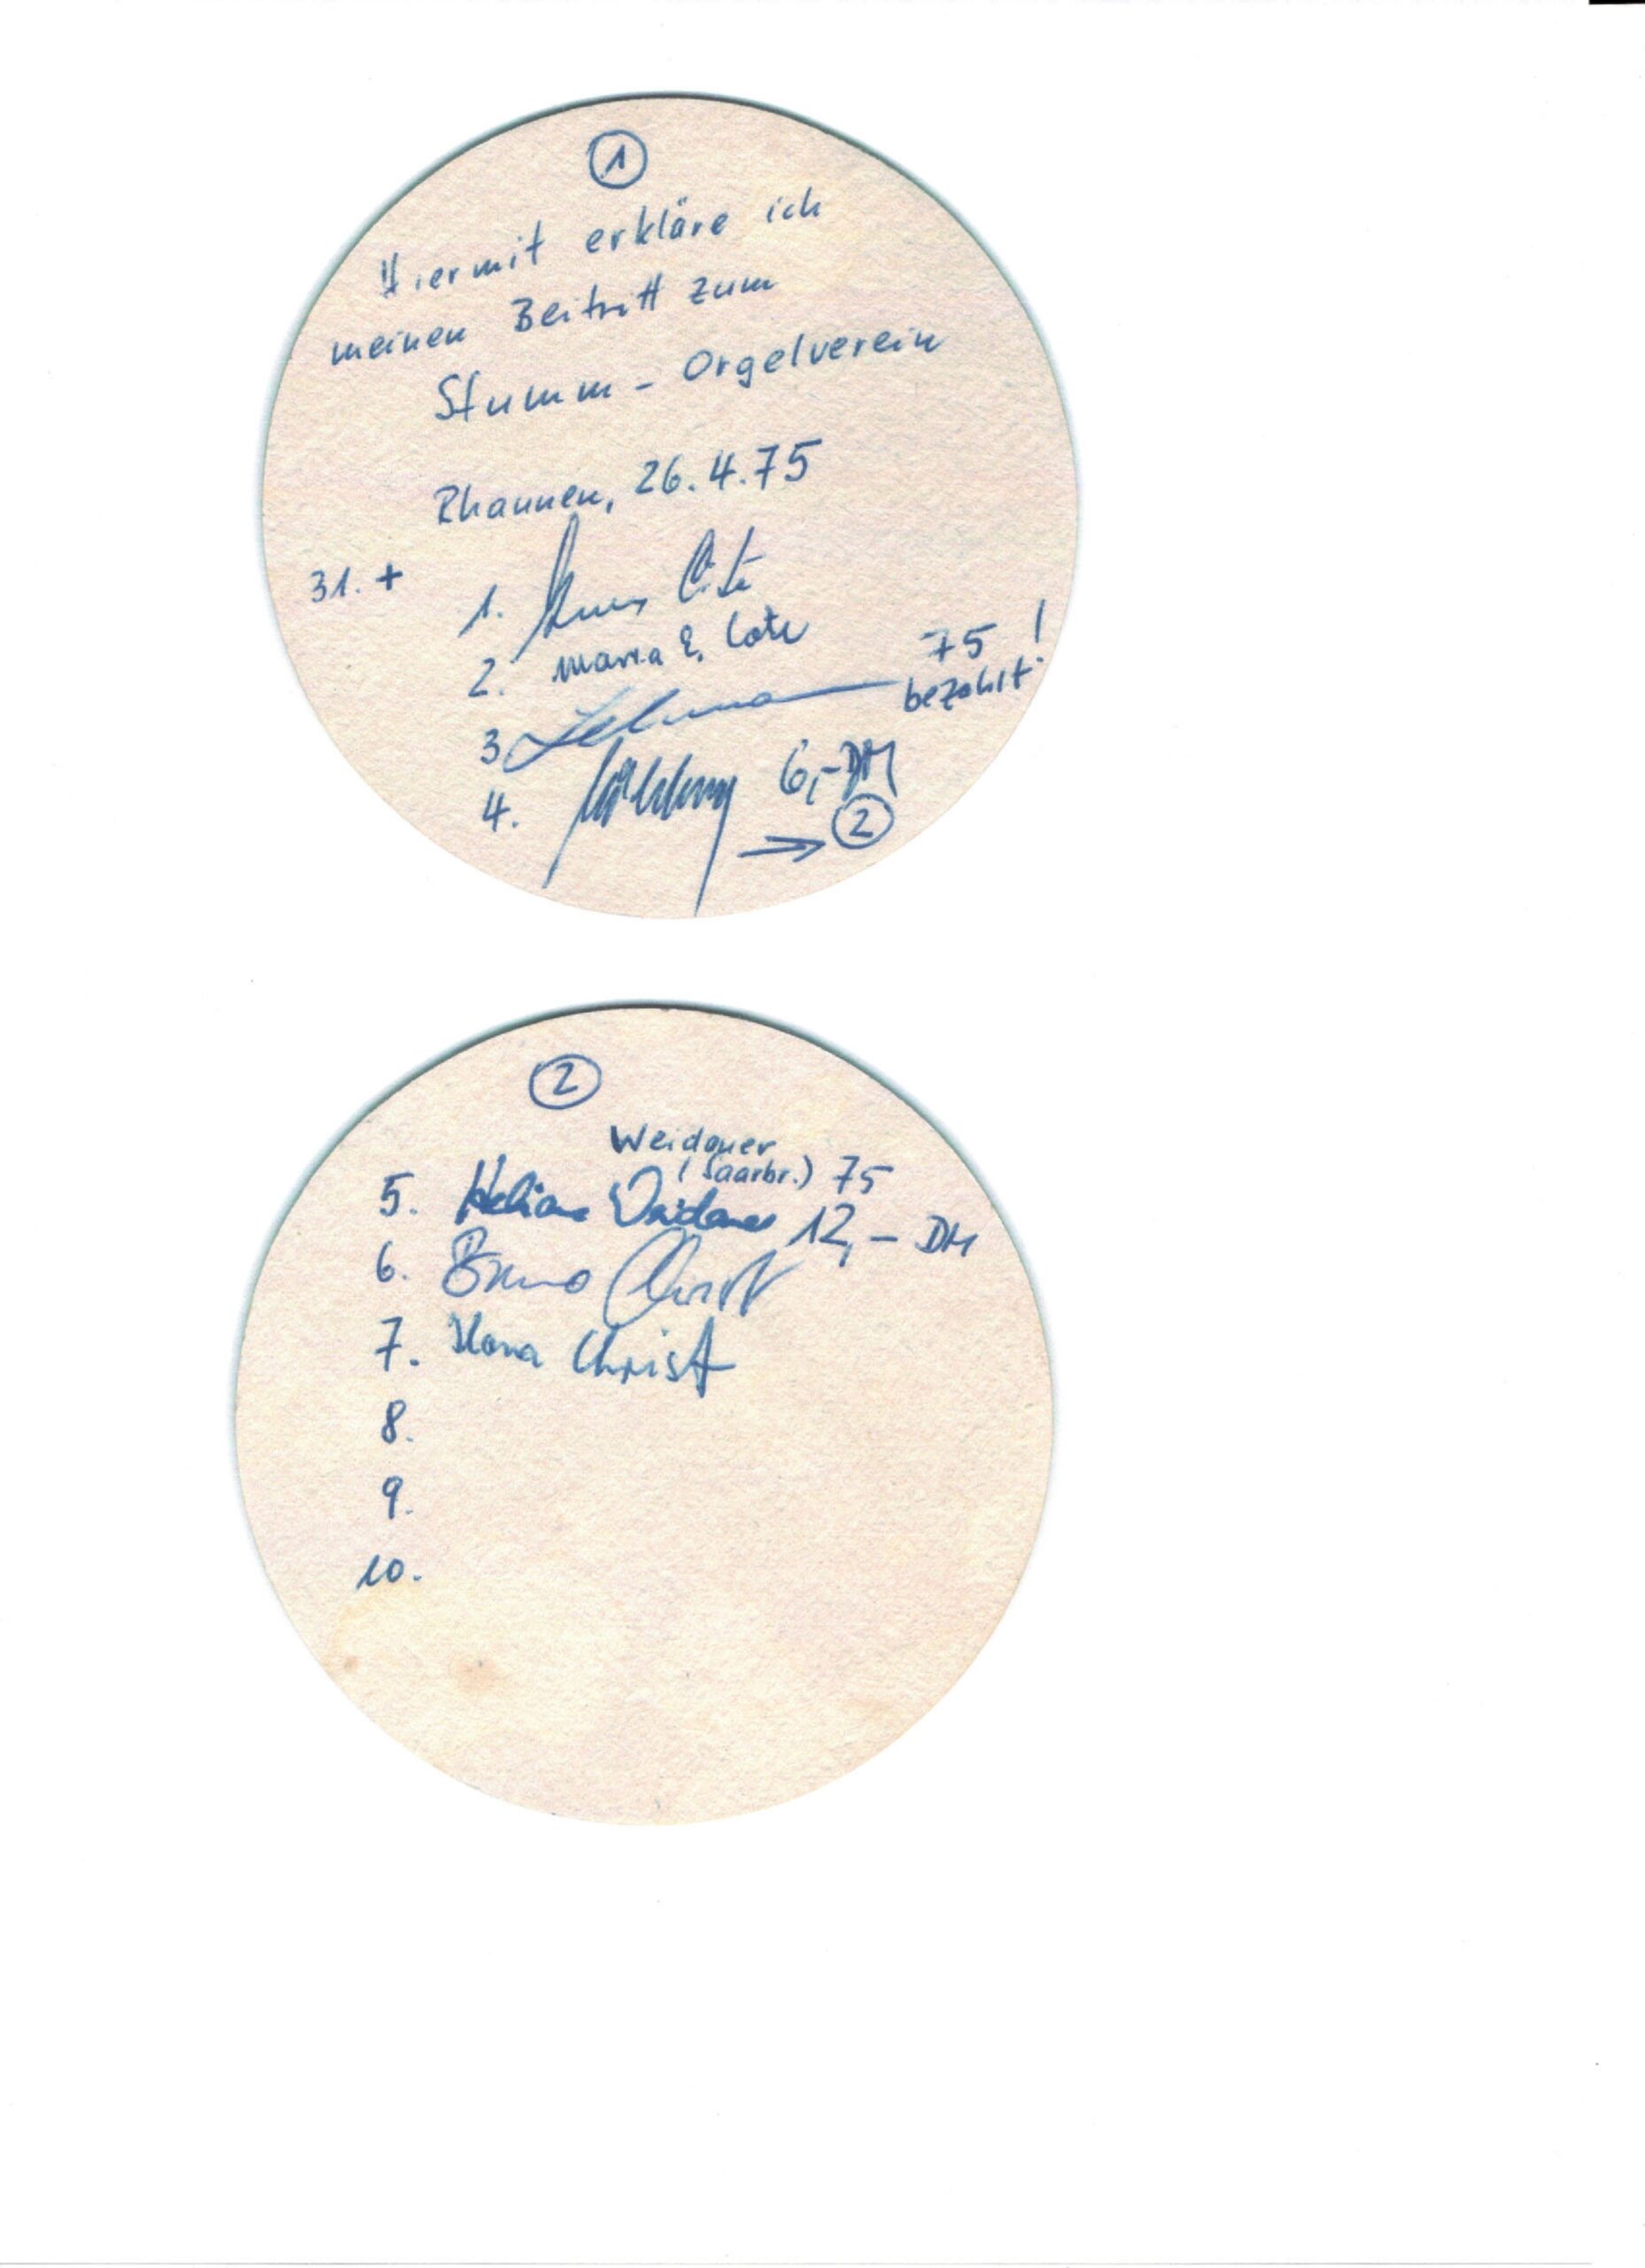 1
Hiermit erkläre ich
meinen Beitritt zum
Stumm - Orgelverein
Rhaunen, 26.4.75
31. +
1.
2. Maria E.
75 !
bezahlt
3
4. 6,- DM
→ 2
2
Weidauer
(Saarbr.) 75
5. Weidauer 12,- DM
6. Bruno Christ
7. Ilona Christ
8.
9.
10.